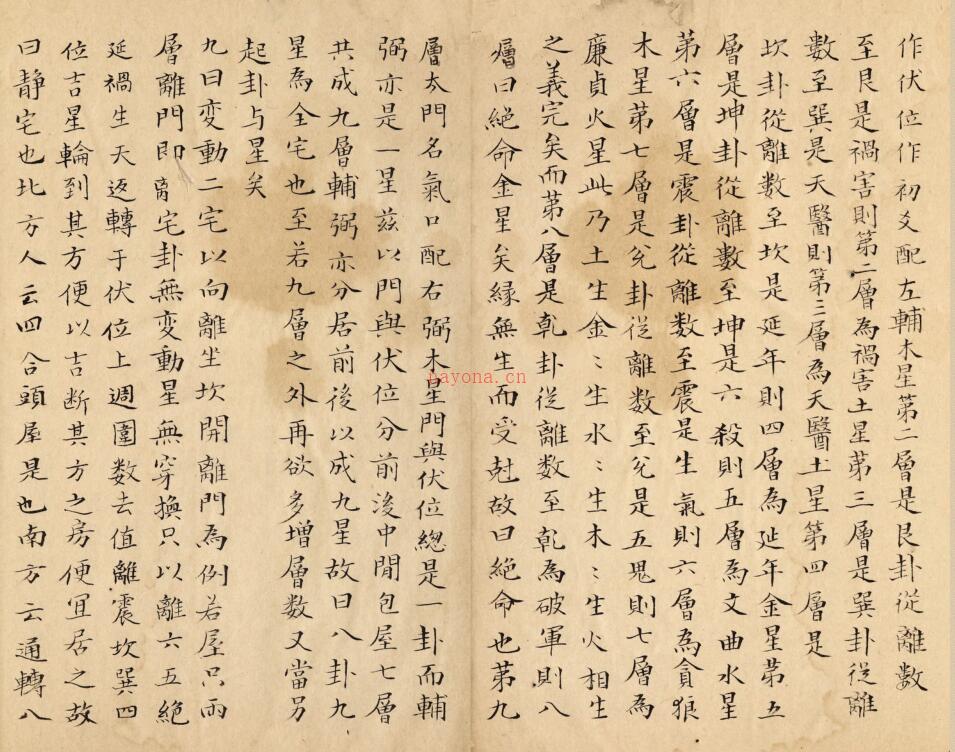 作伏位作初爻配左輔木星第二層是艮卦從離數
至艮是禍害則第二層為禍害土星第三層是巽卦從離
數至巽是天醫則第三層為天醫土星第四層是
坎卦從離數至坎是延年則四層為延年金星第五
層是坤卦從離數至坤是六殺則五層為文曲水星
第六層是震卦從離數至震是生氣則六層為貪狼
木星第七層是兊卦從離数至兊是五鬼則七層為
廉貞火星此乃土生金〻生水〻生木〻生火相生
之義完矣而第八層是乹卦從離数至乹為破軍則八
層曰絕命金星矣縁無生而受尅故曰絕命也第九
層太門名氣口配右弼木星門與伏位總是一卦而輔
弼亦是一星茲以門與伏位分前後中間包屋七層
共成九層輔弼亦分居前後以成九星故曰八卦九
星為全宅也至若九層之外再欲多增層数又當另
起卦与星矣
九曰変動二宅以向離坐坎開離門為例若屋只兩
層離門即离宅卦無変動星無穿換只以離六五絕
延禍生天返轉于伏位上週圍数去值離震坎巽四
位吉星輪到其方便以吉断其方之房便宜居之故
曰静宅也北方人云四合頭屋是也南方云通轉八
payona.cn